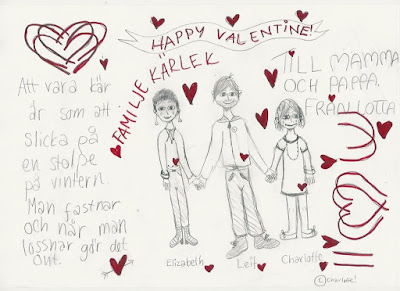 HAPPY VALENTINE!
FAMILJE KÄRLEK
TILL MAMMA
OCH PAPPA,
FRÅN LOTTA
Att vara kär
är som att
slicka på
en stolpe
på vintern.
Man fastnar
och när man
lossnar gör det
ont.
Elizabeth
Leif
Charlotte
©Charlotte!